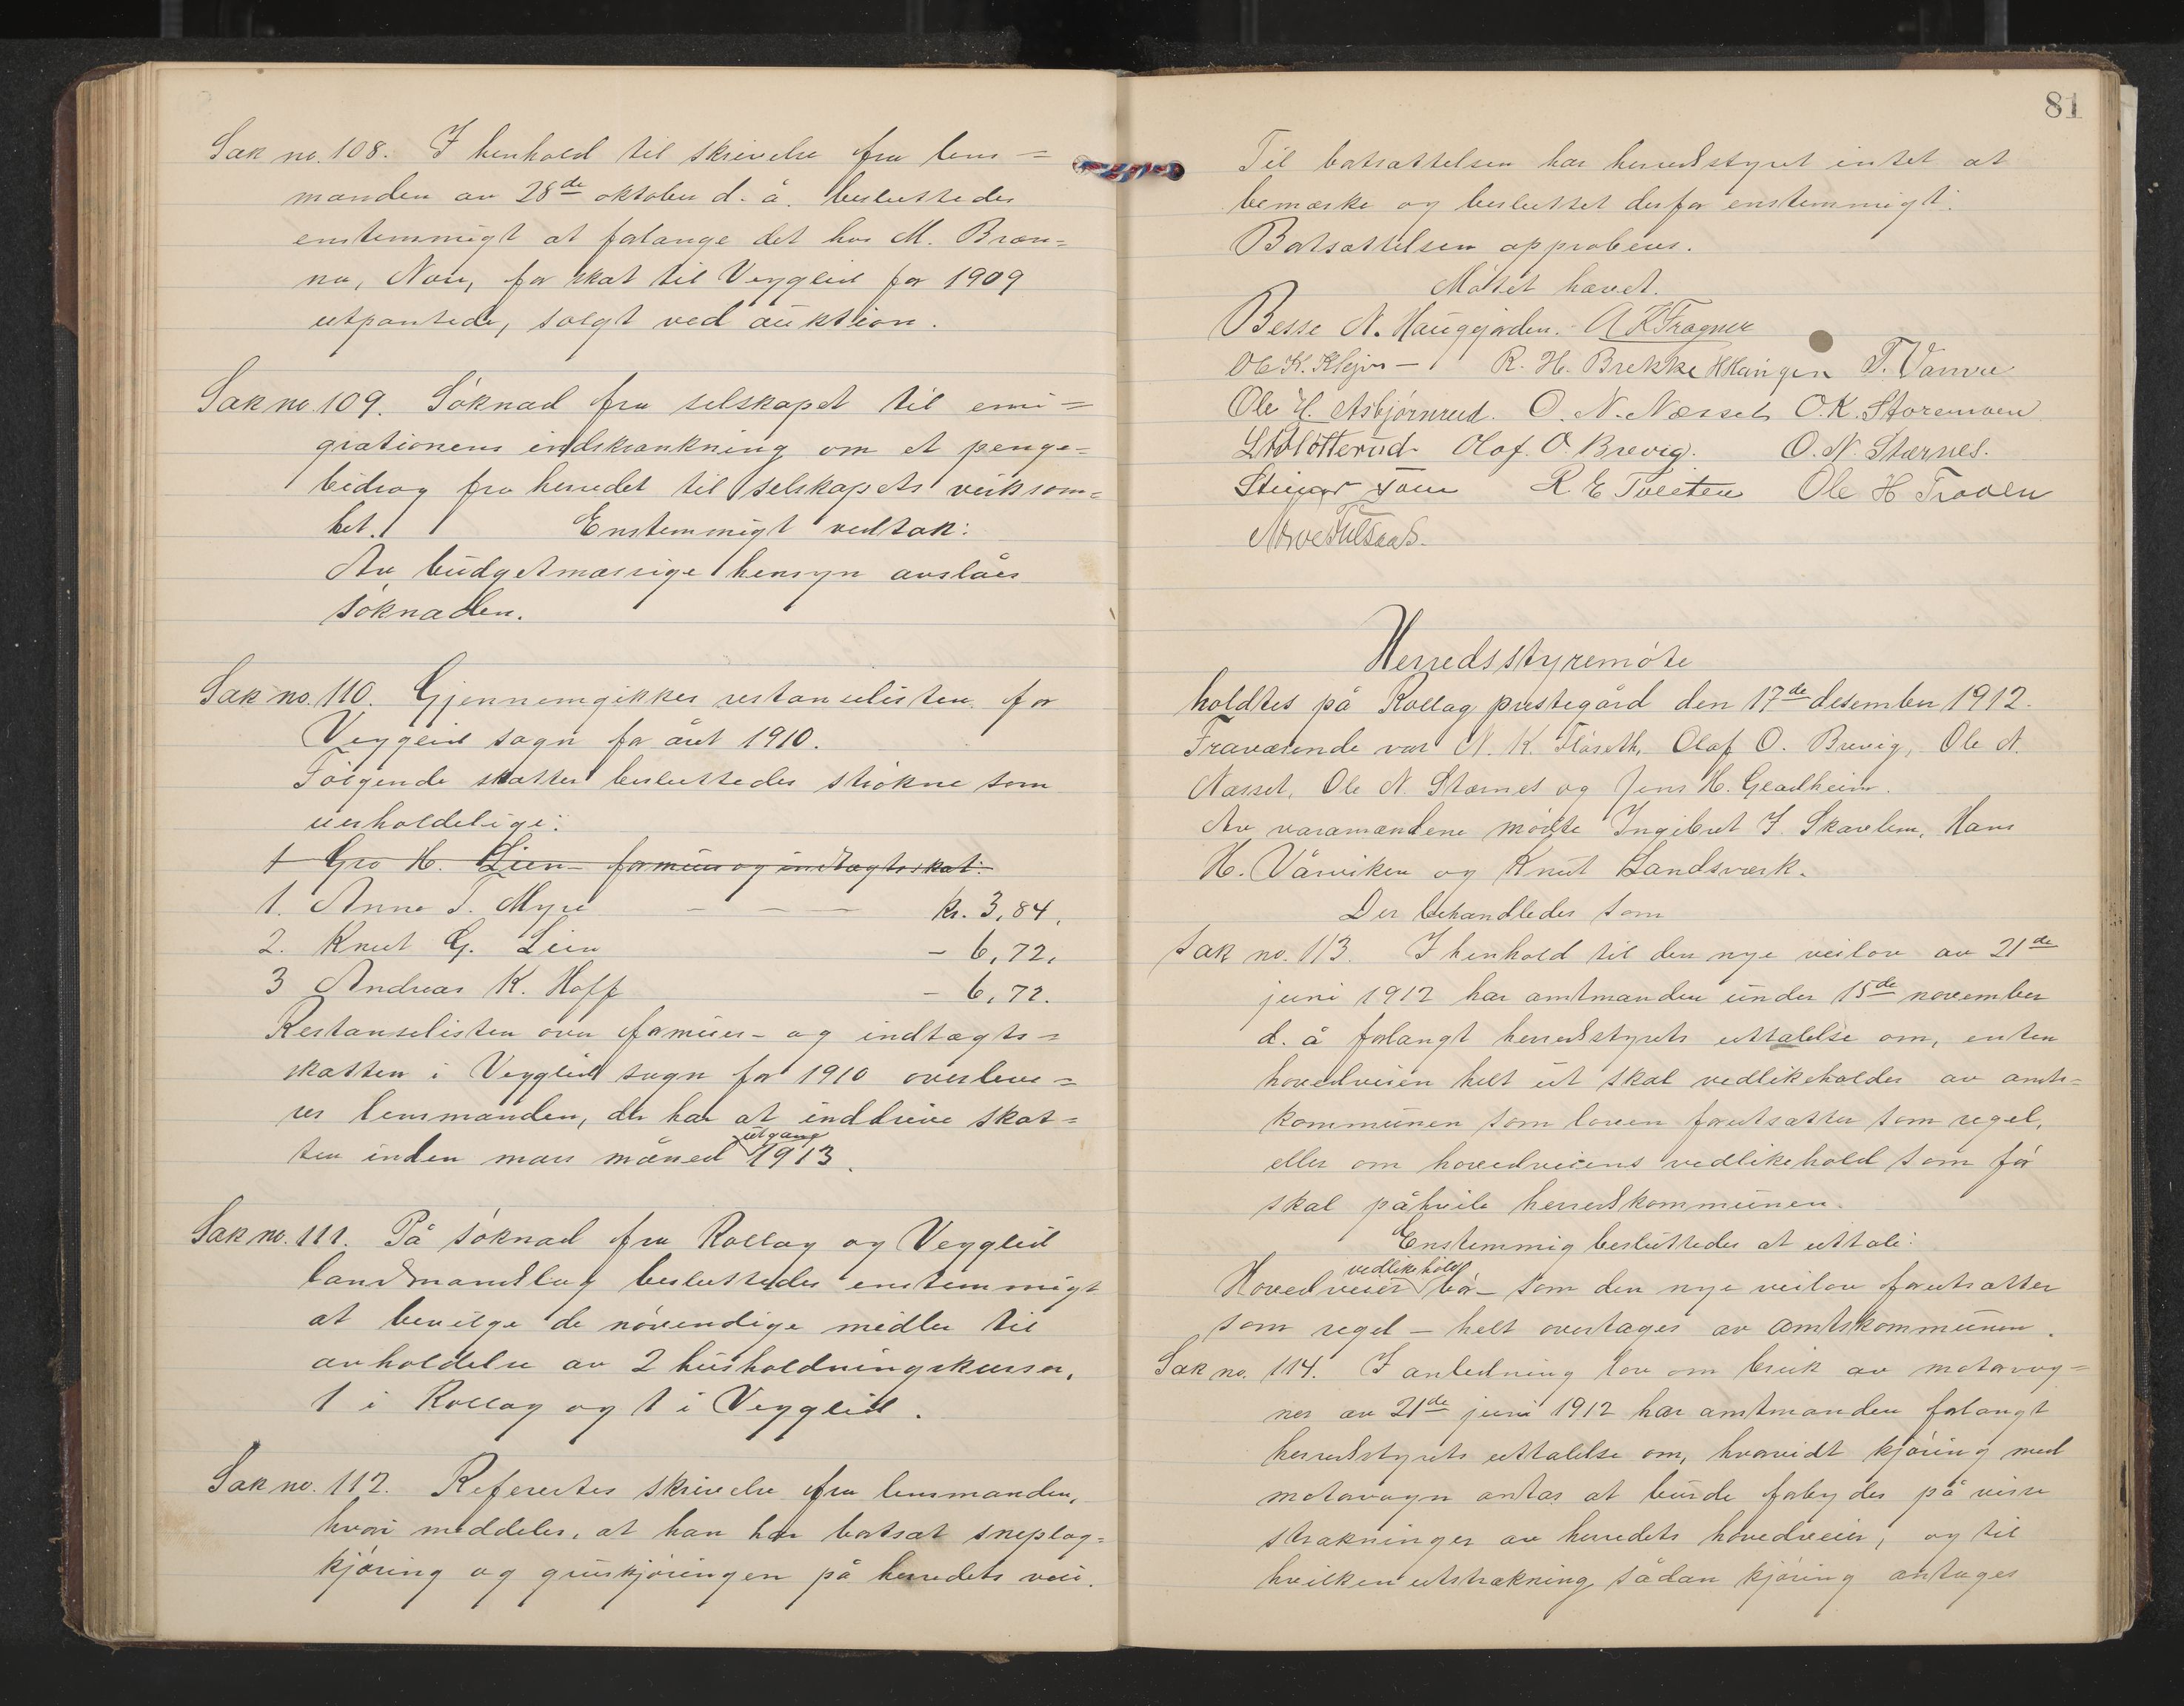 Sak no. 108. I henhold til skrivelse fra lens=
manden av 28de oktober d. å. besluttedes
enstemmigt at forlange det hos M. Bræn=
no, Nore, for skat til Veggleid for 1909
utpantede, solgt ved auktion.
Sak no. 109. Söknad fra selskapet til emi=
grationens indskrænkning om et penge=
bidrag fra herredet til selskapets virksom=
het. Enstemmigt vedtak:
Av budgetmæssige hensyn avslåes
söknaden.
Sak no. 110. Gjennemgikkes restanselisten for
Veggleid sogn for året 1910.
Fölgende skatter besluttedes strökne som
uerholdelige:
1 Gro H. Lien formues og indtægtsskat:
1. Anne T. Myre – – – kr. 3,84.
2. Knut G. Lien – 6,72.
3 Andreas K. Hoff – 6,72.
Restanselisten over formues- og indtægts=
skatten i Veggleid sogn for 1910 overleve=
res lensmanden, der har at inddrive skat=
utgang
ten inden mars måned 1913.
Sak no. 111. På söknad fra Rollag og Veggleid
landmandslag besluttedes enstemmigt
at bevilge de növendige midler til
avholdelse av 2 husholdningskurser,
1 i Rollag og 1 i Veggleid.
Sak no. 112. Referertes skrivelse fra lensmanden,
hvori meddeles, at han har bortsat sneplog=
kjöring og gruskjöringen på herredets veie.
81
Til bortsættelsen har herredsstyret intet at
bemærke og besluttet derfor enstemmigt:
Bortsættelsen approberes.
Mötet hævet.
Besse N. Hauggjorden. A K Fragner
Ole K. Klejvo – R. H. Brekke H Haugen T. Vårviu
Ole H. Asbjörnrud. O. N. Næsset O. K. Storemoen
Slotterud. Olaf. O. Brevig. O. N. Stærnes.
Steinar Foen R E Tveiten Ole H Traaen
Herredsstyremöte
holdtes på Rollag prestegård den 17de desember 1912.
Fraværende var N. K. Flåseth, Olaf O. Brevig, Ole N.
Næsset, Ole N. Stærnes og Jens H. Gladheim.
Av varamændene mödte Ingebret J. Skavlem, Hans
H. Vårviken og Knut Landsværk.
Der behandledes som
Sak no. 113. I henhold til den nye veilov av 21de
juni 1912 har amtmanden under 15de november
d. å forlangt herredsstyrets uttalelse om, enten
hovedveien helt ut skal vedlikeholdes av amts=
kommunen som loven forutsætter som regel,
eller om hovedveiens vedlikehold som för
skal påhvile herredskommunen.
Enstemmig besluttedes at uttale:
vedlikehold
Hovedveier bör – som den nye veilov forutsætter
som regel – helt overtages av amtskommunen.
Sak no. 114. I anledning lov om bruk av motorvog=
ner av 21de juni 1912 har amtmanden forlangt
herredsstyrets uttalelse om, hvorvidt kjöring med
motorvogn antas at burde forbydes på visse
strækninger av herredets hovedveier, og til
hvilken utstrækning sådan kjöring antages